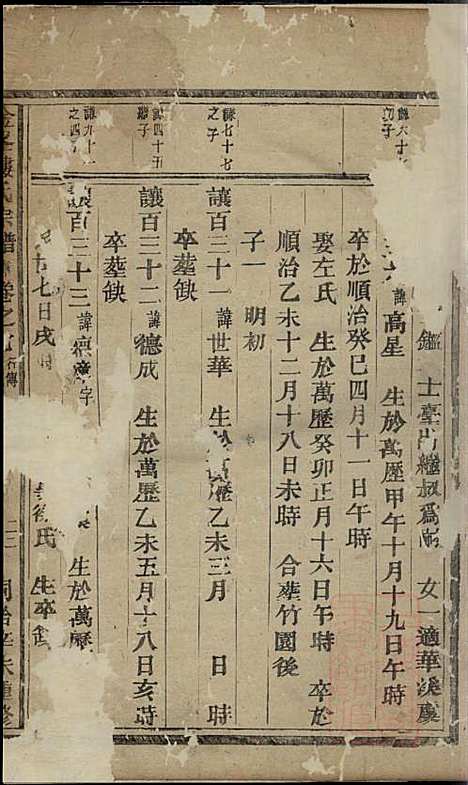 鑑 士臺 出繼叔爲嗣 女一適華溪虞
讓六十
之子
諱高星 生於萬歷甲午十月十九日午時
卒於順治癸巳四月十一日午時
娶左氏 生於萬歷癸卯正月十六日午時 卒於
順治乙未十二月十八日未時 合塟竹園後
子一 明初
謙七十七
之子
讓百二十一 諱世華 生於萬歷乙未三月 日 時
卒塟缺
謙四十五
繼子
讓百三十二 諱德成 生於萬歷乙未五月十八日亥時
卒塟缺
謙九十一
之四子
百三十三 諱 字 生於萬歷
廿七日戌時 氏 生卒缺
樓氏宗譜 卷之 行傳 二二 同治辛未重修